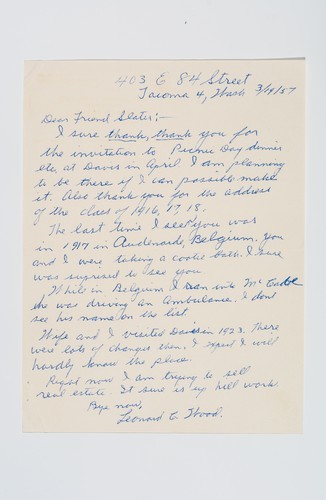 403 E 84 Street
Tacoma 4, Wash 3/19/57
Dear Friend Slater:-
I sure thank, thank you for
the invitation to Picnic Day dinner
etc, at Davis in April I am planning
to be there if I can possible make
it. Also thank you for the address
of the class of 1916, 17, 18.
The last time I see you was
in 1917 in Audenarde, Belgium. You
and I were taking a cootie bath. I sure
was surprised to see you.
While in Belgium I ran into
he was driving an ambulance. I dont
see his name on the list.
Wife and I visited Davis in 1923. There
were lots of changes then. I expect I will
hardly know the place.
Right now I am trying to sell
real estate. It sure is up hill work
Bye now,
Leonard C. Wood.